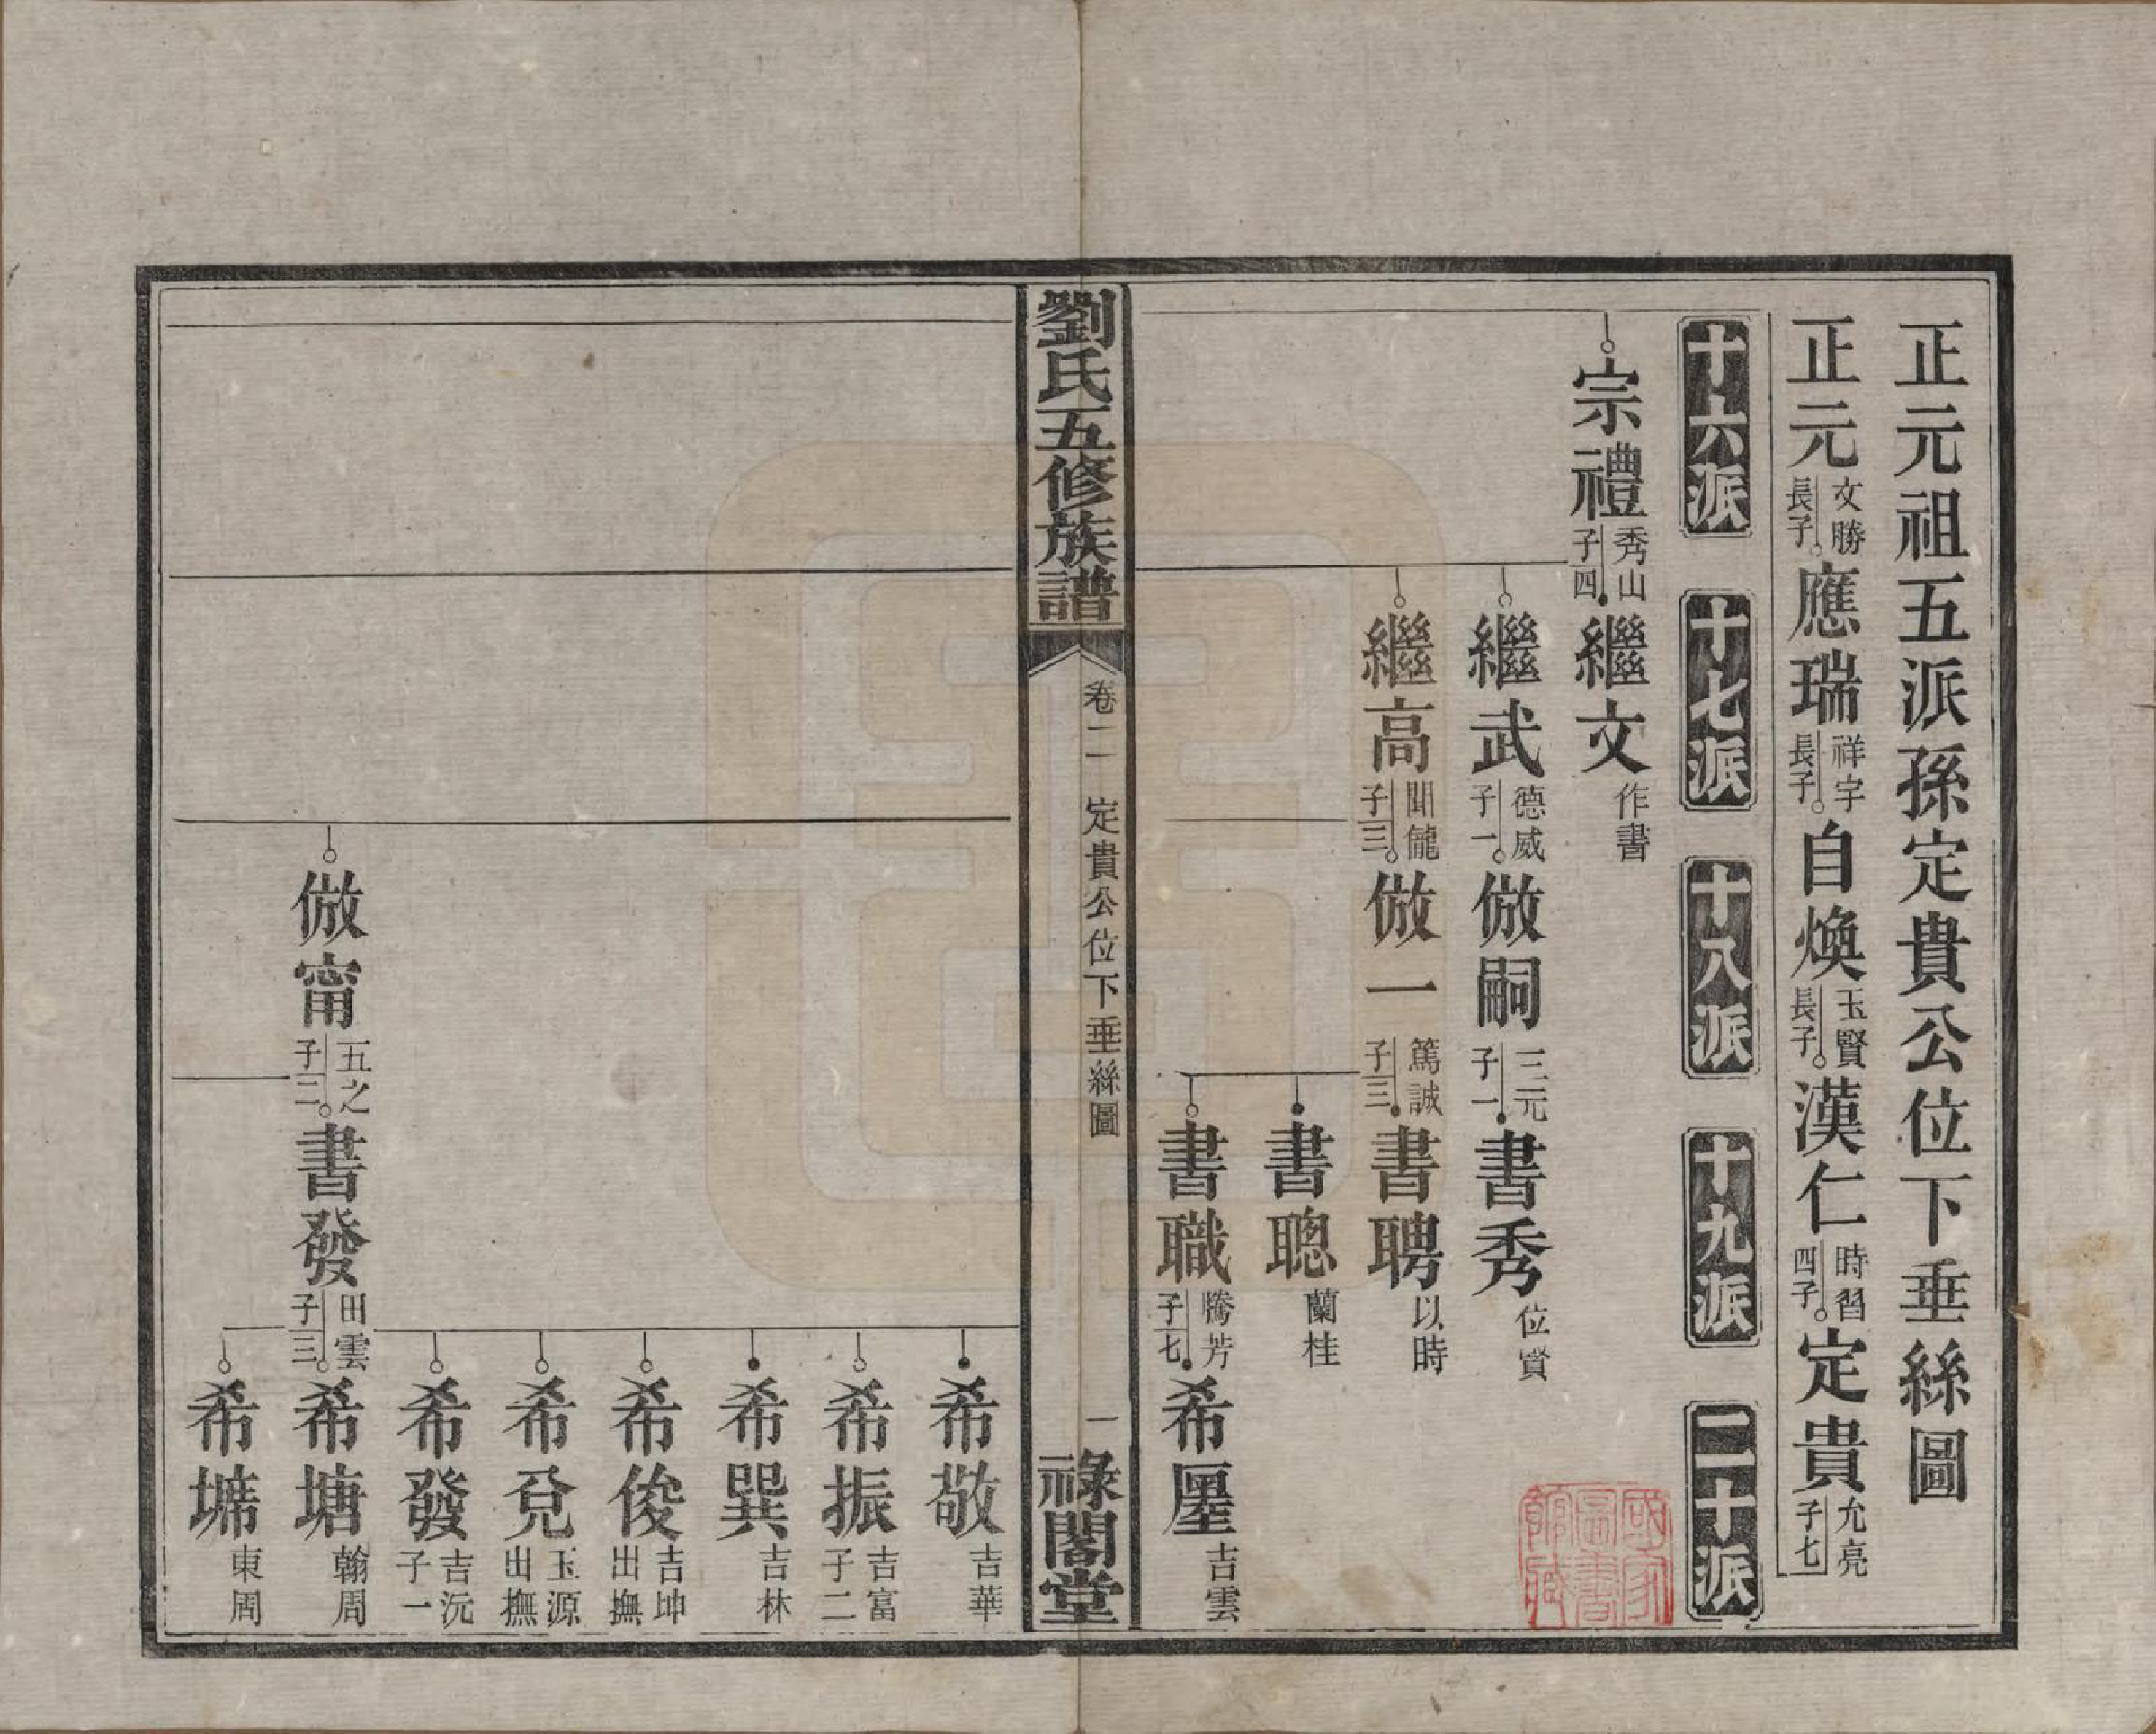 正元祖五派孫定貴公位下垂絲圖
正元 文勝 長子 應瑞 祥宇 長子 自煥 玉賢 長子 漢仁 時習 四子 定貴 允亮 子七
十六派 十七派 十八派 十九派 二十派
宗禮 秀山 子四 繼文 作書
繼武 德威 子一 倣嗣 三元 子一 書秀 位賓
繼高 聞儱 子三 倣一 篤誠 子三 書聘 以時
書聰 蘭桂
書職 騰芳 子七 希壥 吉雲
劉氏五修族譜 卷二 定貴公位下垂絲圖 一 祿閣堂
希敬 吉華
希振 吉富 子二
希巽 吉林
希俊 吉坤 出撫
希兌 玉源 出撫
希發 吉沅 子一
倣甯 五之 子二 書發 田雲 子三 希塘 翰周
希墆 東周
國家圖書館藏